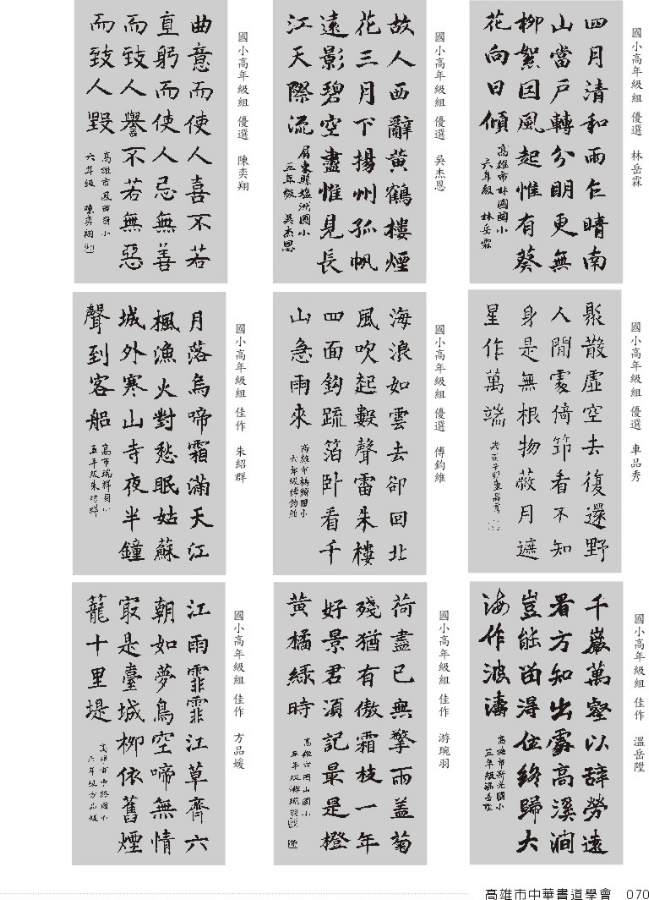 國小高年級組 優選 林岳霖
四月清和雨乍晴南
山當戶轉分明更無
柳絮因風起惟有葵
花向日傾
高雄市林園國小
六年級 林岳霖
國小高年級組 優選 吳杰恩
故人西辭黃鶴樓煙
花三月下揚州孤帆
遠影碧空盡惟見長
江天際流
屏東縣塩洲國小
五年級 吳杰恩
國小高年級組 優選 陳奕翔
曲意而使人喜不若
直躬而使人忌無善
而致人譽不若無惡
而致人毀
高雄市鳳西國小
六年級 陳奕翔
國小高年級組 優選 車品秀
聚散虛空去復還野
人閒處倚筇看不知
身是無根物蔽月遮
星作萬端
國小高年級組 優選 傅鈞維
海浪如雲去卻回北
風吹起數聲雷朱樓
四面鈎疏箔卧看千
山急雨來
六年級傅鈞維
國小高年級組 佳作 朱紹群
月落烏啼霜滿天江
楓漁火對愁眠姑蘇
城外寒山寺夜半鐘
聲到客船
高市瑞祥國小
五年級朱紹群
國小高年級組 佳作 溫岳陞
千巖萬壑以辭勞遠
看方知出處高溪澗
豈能留得住終歸大
海作波濤
高雄市新光國小
五年級溫岳陞
國小高年級組 佳作 游琬羽
荷盡已無擎雨蓋菊
殘猶有傲霜枝一年
好景君須記最是橙
黃橘綠時
高雄市岡山國小
五年級游琬羽
國小高年級組 佳作 方品媛
江雨霏霏江草齊六
朝如夢鳥空啼無情
最是臺城柳依舊煙
籠十里堤
六年級方品媛
高雄市中華書道學會 070